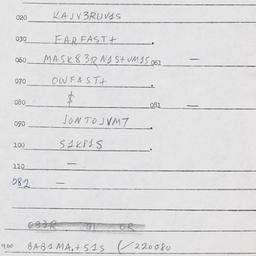 020 KAJV3RUV1S
030 FARFAST+
060 MASK83RN1S+UM1S 061 —
070 OWFAST+
080 $ 081 —
090 JONTOJVM7
100 S1KP1S
110 —
082 —
900 BAB1MA,+S1S (/220080